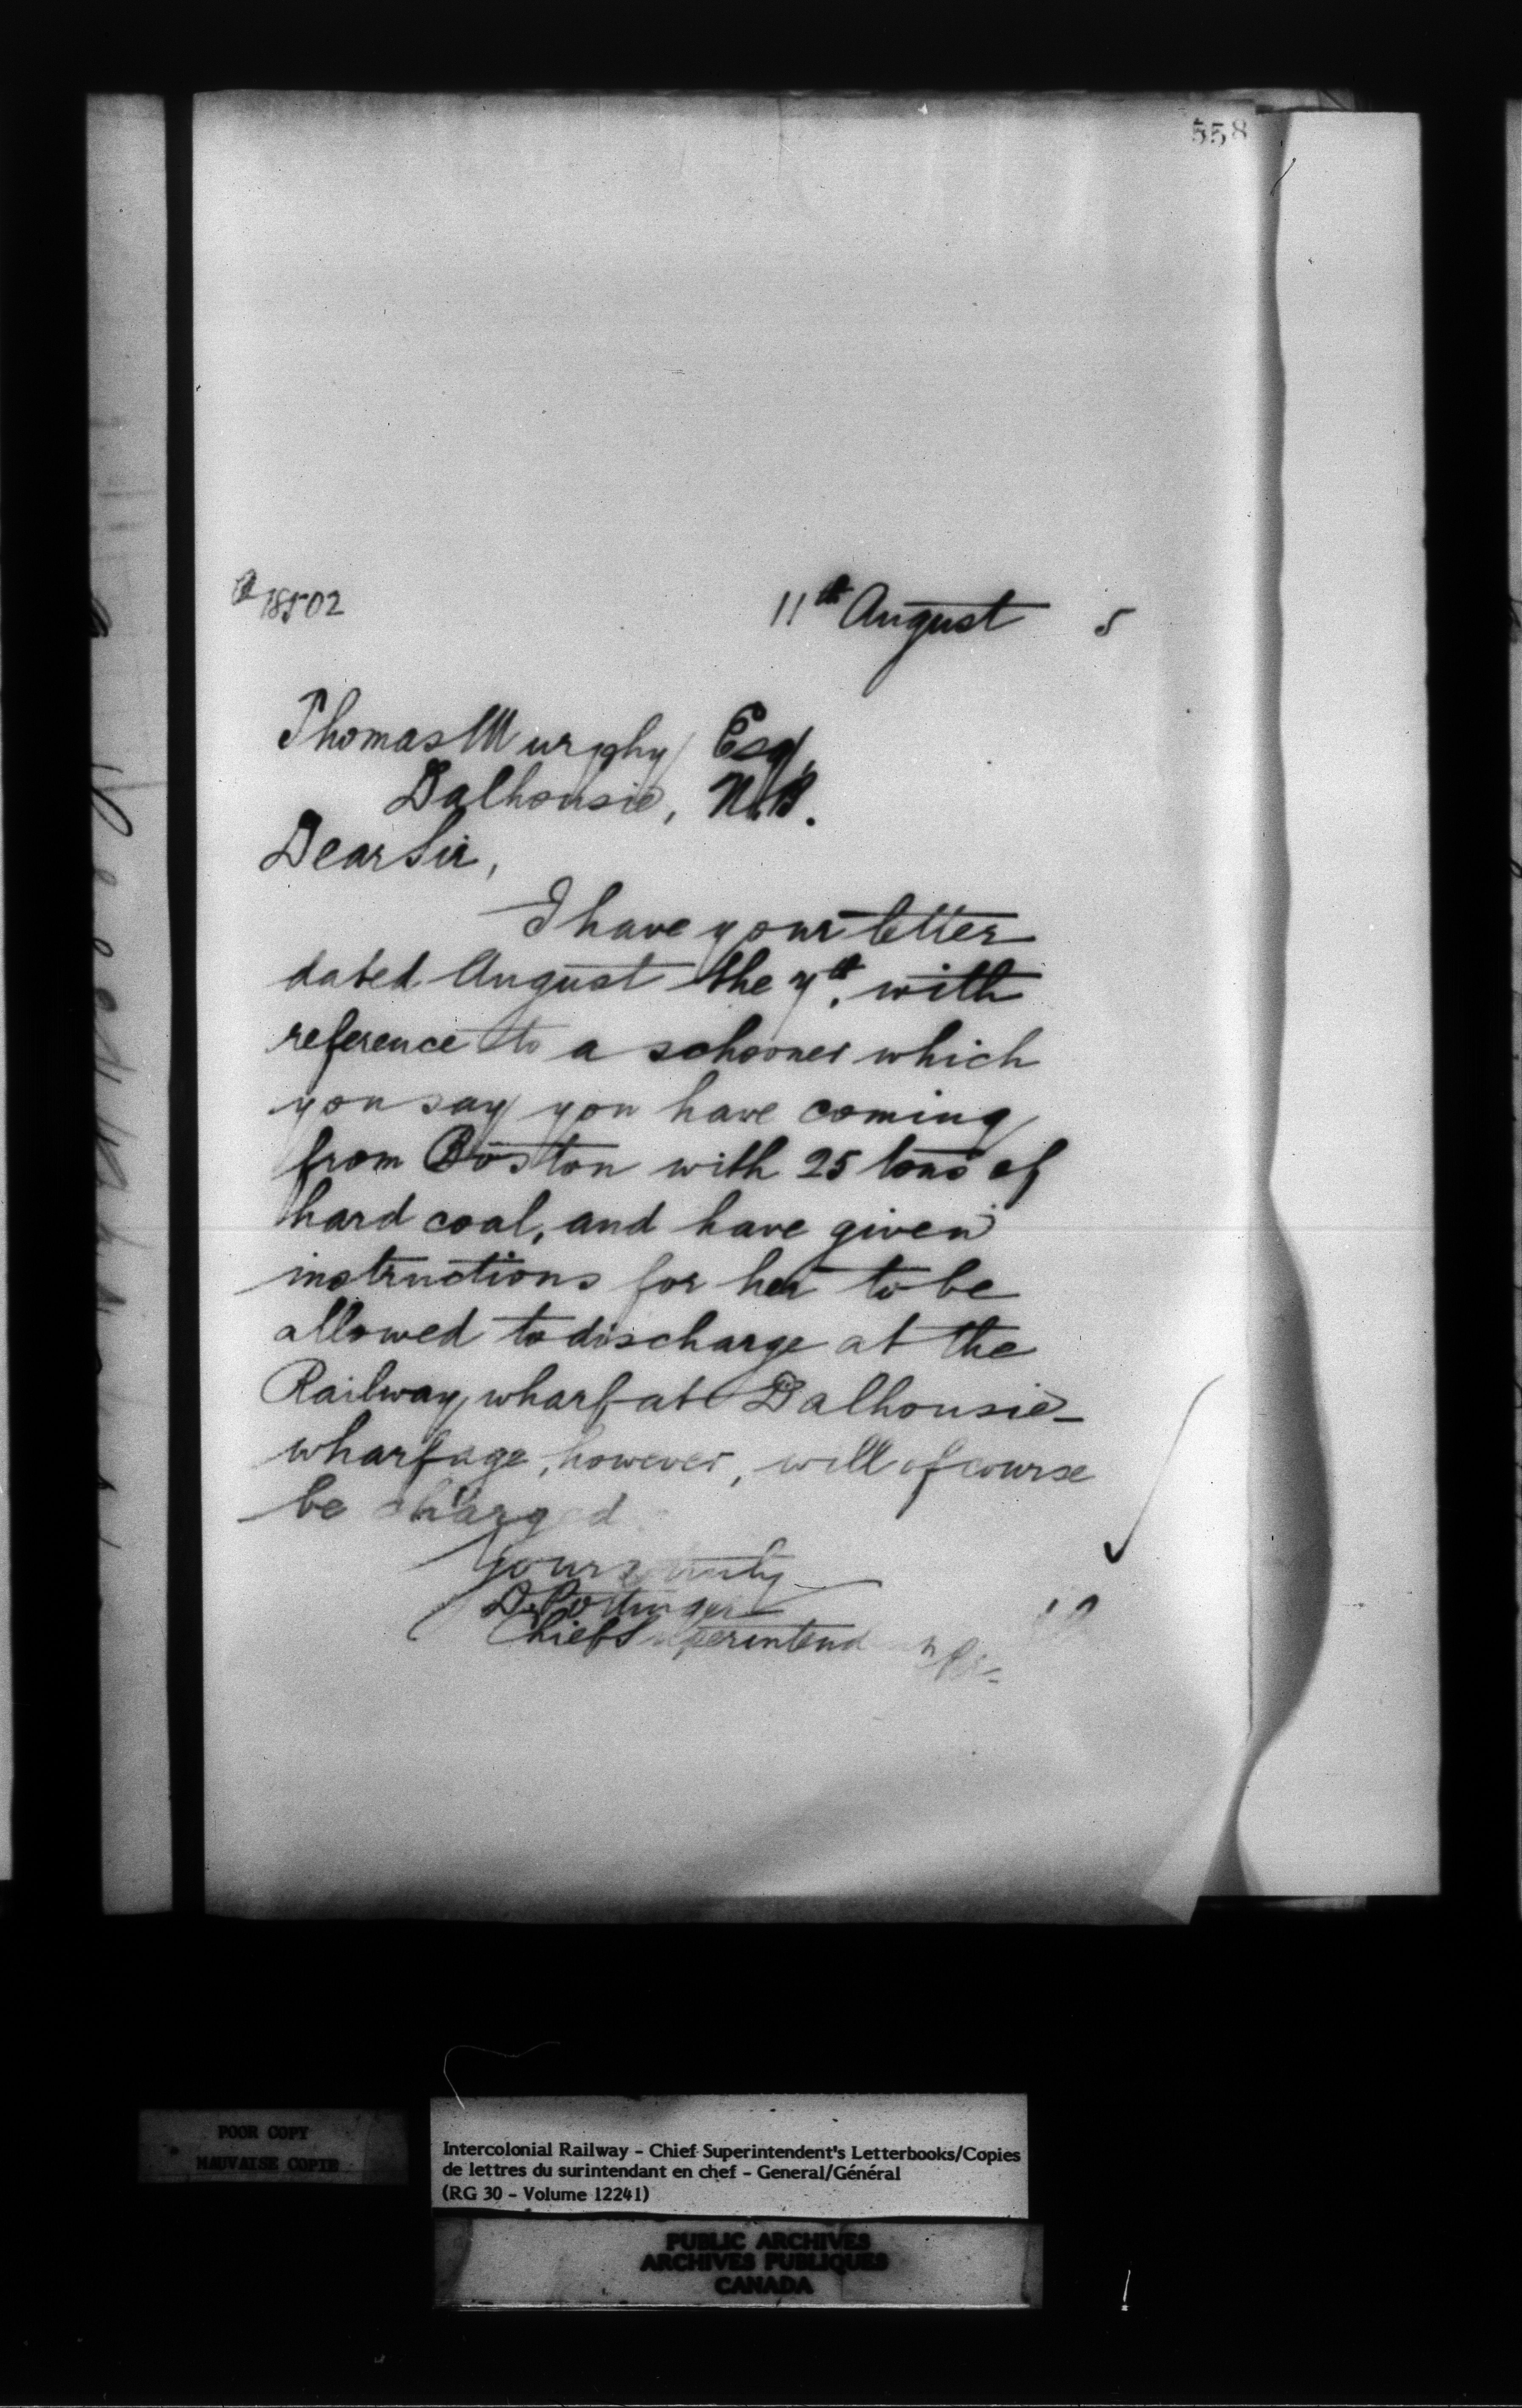 558
18502
11th August 5
Thomas Murphy Esq,
Dalhousie, N.B.
Dear Sir,
I have your letter
dated August the 7th, with
reference to a schooner which
you say you have coming
from Boston with 25 tons of
hard coal, and have given
instructions for her to be
allowed to discharge at the
Railway wharf at Dalhousie_
wharfage, however, will of course
be charged
Yours truly
D. Pottinger
Chief Superintend
POOR COPY
MAUVAISE COPIE
Intercolonial Railway - Chief Superintendent's Letterbooks/Copies
de lettres du surintendant en chef - General/Général
(RG 30 - Volume 12241)
PUBLIC ARCHIVES
ARCHIVES PUBLIQUES
CANADA